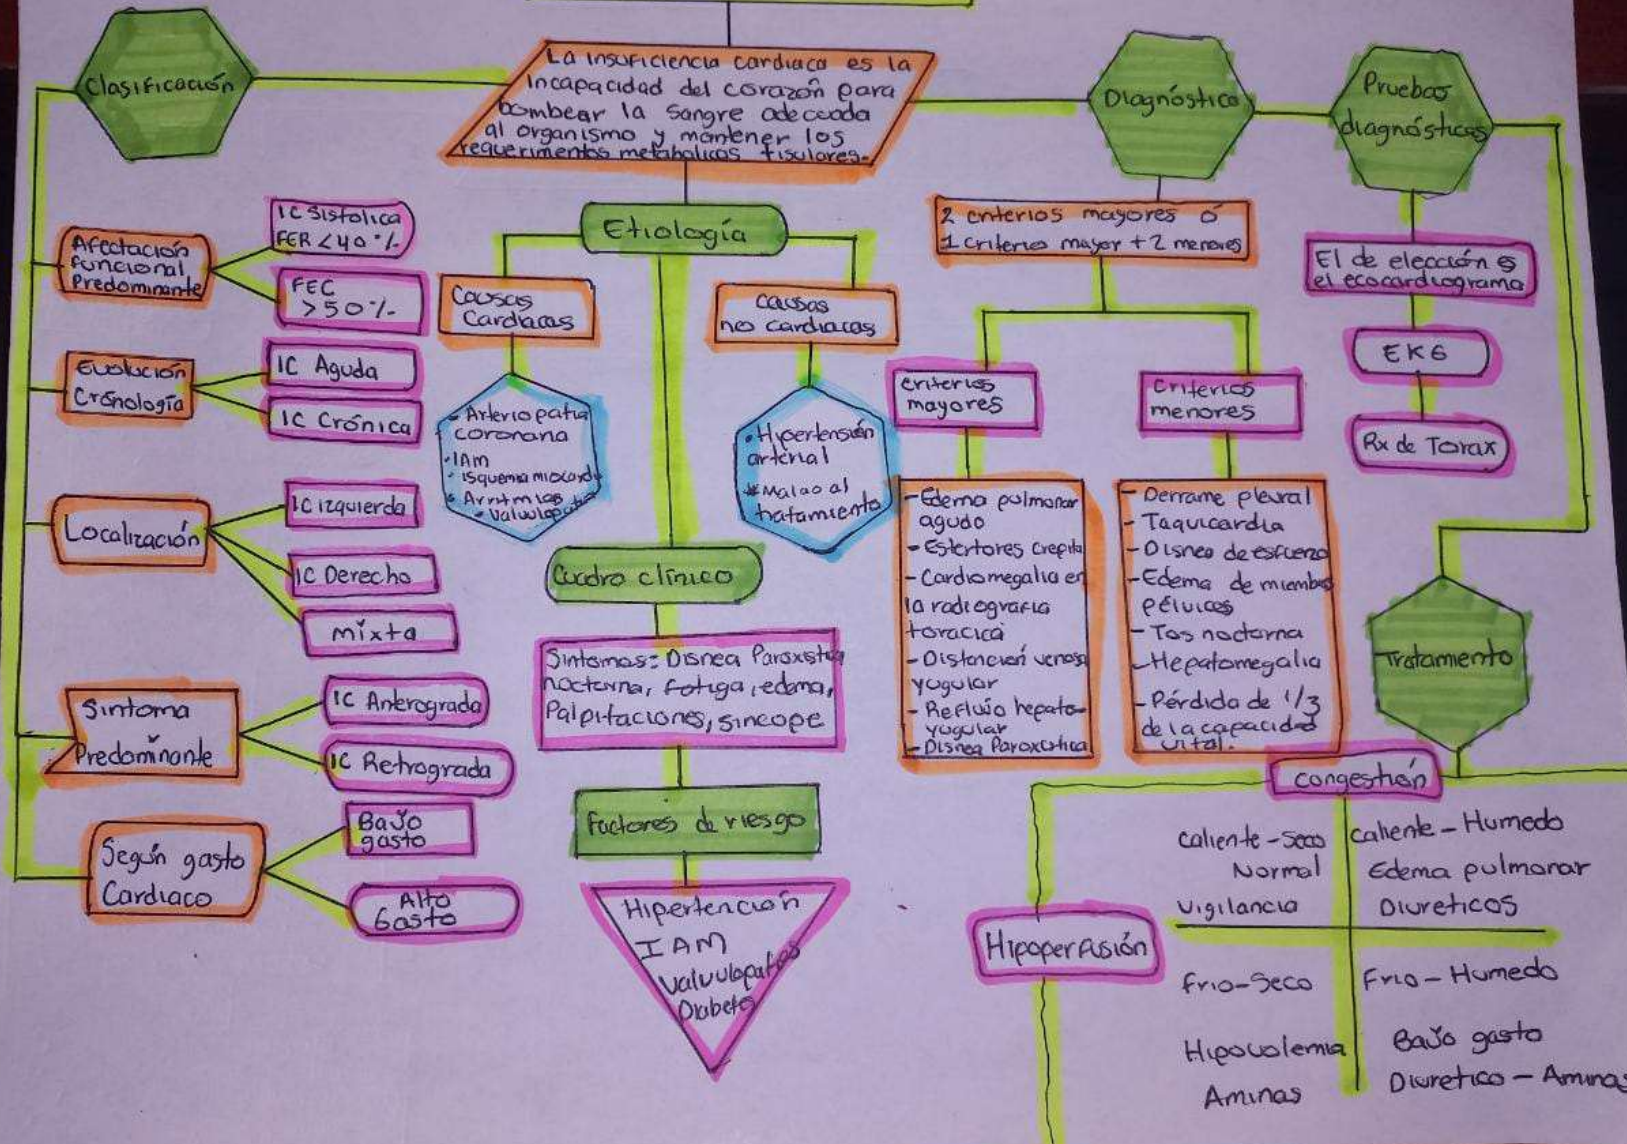 Clasificación
La insuficiencia cardiaca es la
incapacidad del corazón para
bombear la sangre adecuada
al organismo y mantener los
requerimentos metabolicos tisulares.
Diagnóstico
Pruebas
diagnósticas
Afectación
funcional
Predominante
IC Sistolica
FER <40%
FEC
>50%
Evolución
Cronología
IC Aguda
IC Crónica
Localización
IC izquierda
IC Derecho
mixta
Sintoma
Predominante
IC Anterograda
IC Retrograda
Según gasto
Cardiaco
Bajo
gasto
Alto
Gasto
Etiología
Causas
Cardiacas
- Arteriopatia
coronaria
• IAM
• isquemia
• Arritmias
causas
no cardiacas
• Hypertensión
arterial
* Malao al
tratamiento
Cuadro clínico
Sintomas: Disnea
nocturna, fatiga, edema,
Palpitaciones, sincope
Factores de riesgo
Hipertención
IAM
Valvulopatias
Diabetes
2 criterios mayores ó
1 criterio mayor + 2 menores
criterios
mayores
- Edema pulmonar
agudo
- Estertores
- Cardiomegalia en
la radiografia
toracica
- Distención venosa
yugular
- Reflujo hepato-
yugular
- Disnea
Criterios
menores
- Derrame pleural
- Taquicardia
- Disnea de esfuerzo
- Edema de miembros
pélvicos
- Tos nocturna
- Hepatomegalia
- Pérdida de 1/3
de la capacidad
vital.
El de elección es
el ecocardiograma
EKG
Rx de Torax
Tratamiento
Congestión
Hipoperfusión
Caliente - Seco
Normal
Vigilancia
Caliente - Humedo
Edema pulmonar
Diureticos
Frio - Seco
Hipovolemia
Aminas
Frio - Humedo
Bajo gasto
Diuretico - Aminas